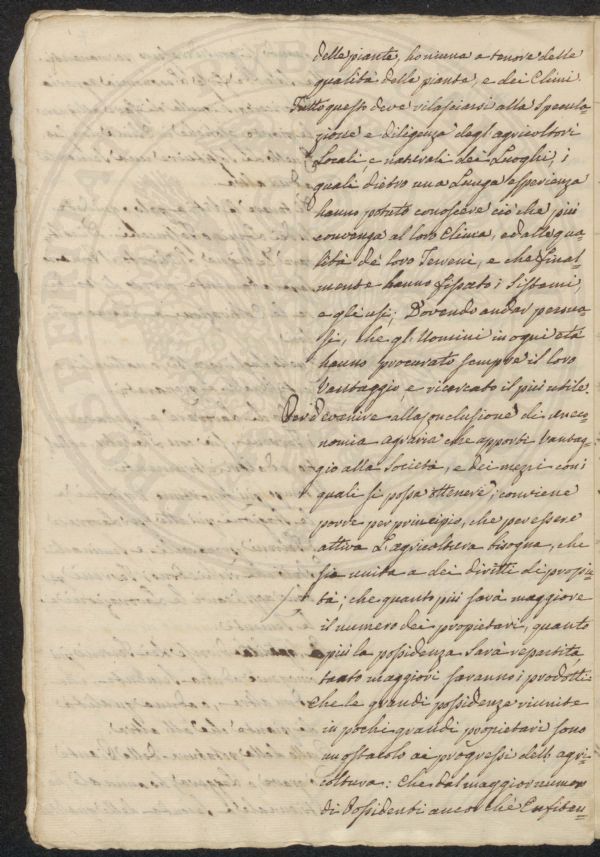 delle piante, hominna a tenore delle
qualità delle piante, e dei Climi.
Tutto questo deve rilasciarsi alla Specula-
zione e diligenza degl'agricoltori
Locali e naturali dei Luoghi, i
quali dietro una Lunga esperienza
hanno potuto conoscere ciò che più
convenga al loro Clima, e dalle qua-
lità de' loro Terreni, e che final-
mente hanno fissato i Sistemi,
e gli usi; Dovendo andar persua-
si, che gl'Uomini in ogni età
hanno procurato sempre il loro
Vantaggio, e ricercato il più utile.
Per devenire alla conclusione di un eco-
nomia agraria che apporti Vantag-
gio alla Società, e dei mezzi con i
quali si possa ottenere; conviene
porre per principio, che per essere
attiva L'agricoltura bisogna, che
sia unita a dei diritti di proprie-
tà; che quanto più sarà maggiore
il numero dei propietari, quanto
più la possidenza sarà repartita,
tanto maggiori saranno i prodotti
che le grandi possidenze riunite
in pochi grandi propietari sono
un ostacolo ai progressi dell'agri-
coltura: che dal maggior numero
di Possidenti ancorchè Enfiteu-